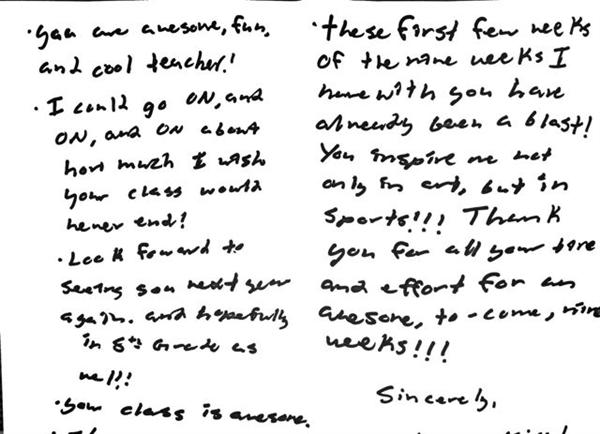 · you are awesome, fun,
and cool teacher!
· I could go ON, and
ON, and ON about
how much I wish
your class would
never end!
· Look foward to
seeing you next year
again. and hopefully
in 8th Grade as
well!!
· your class is awesome.
· these first few weeks
of the nine weeks I
have with you have
already been a blast!
You inspire me not
only in art, but in
sports!!! Thank
you for all your time
and effort for an
awesome, to-come, nine
weeks!!!
Sincerely,